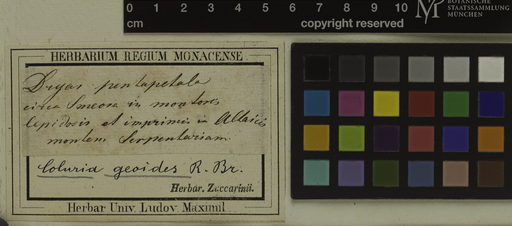 0 1 2 3 4 5 6 7 8 9 10
cm
copyright reserved
BOTANISCHE
STAATSSAMMLUNG
MÜNCHEN
HERBARIUM REGIUM MONACENSE
Dryas pentapetala
circa in montes
lepidosis et imprimis in Altaicis
montem Serpentariam
Coluria geoides R. Br.
Herbar. Zuccarinii.
Herbar. Univ. Ludov. Maximil